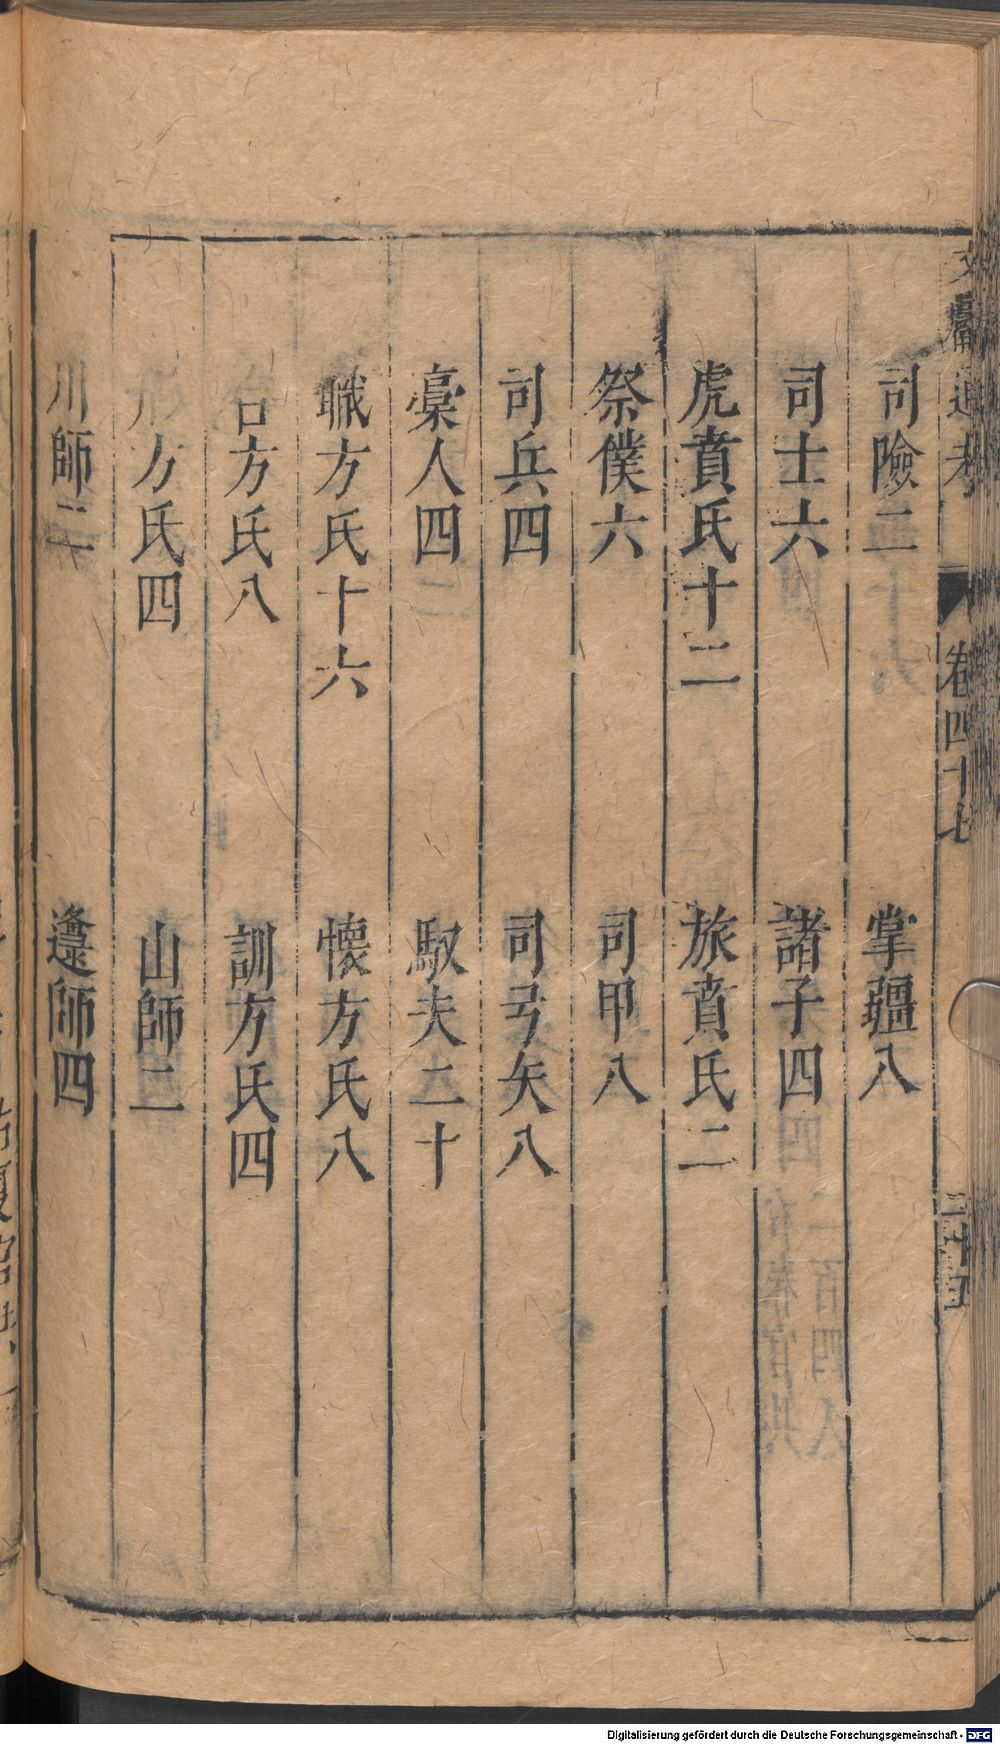 文獻通考 卷四十七 二十五
司險二 掌疆八
司士六 諸子四
虎賁氏十二 旅賁氏二
祭僕六 司甲八
司兵四 司弓矢八
槀人四 馭夫二十
職方氏十六 懷方氏八
合方氏八 訓方氏四
形方氏四 山師二
川師二 邍師四
Digitalisierung gefördert durch die Deutsche Forschungsgemeinschaft - DFG